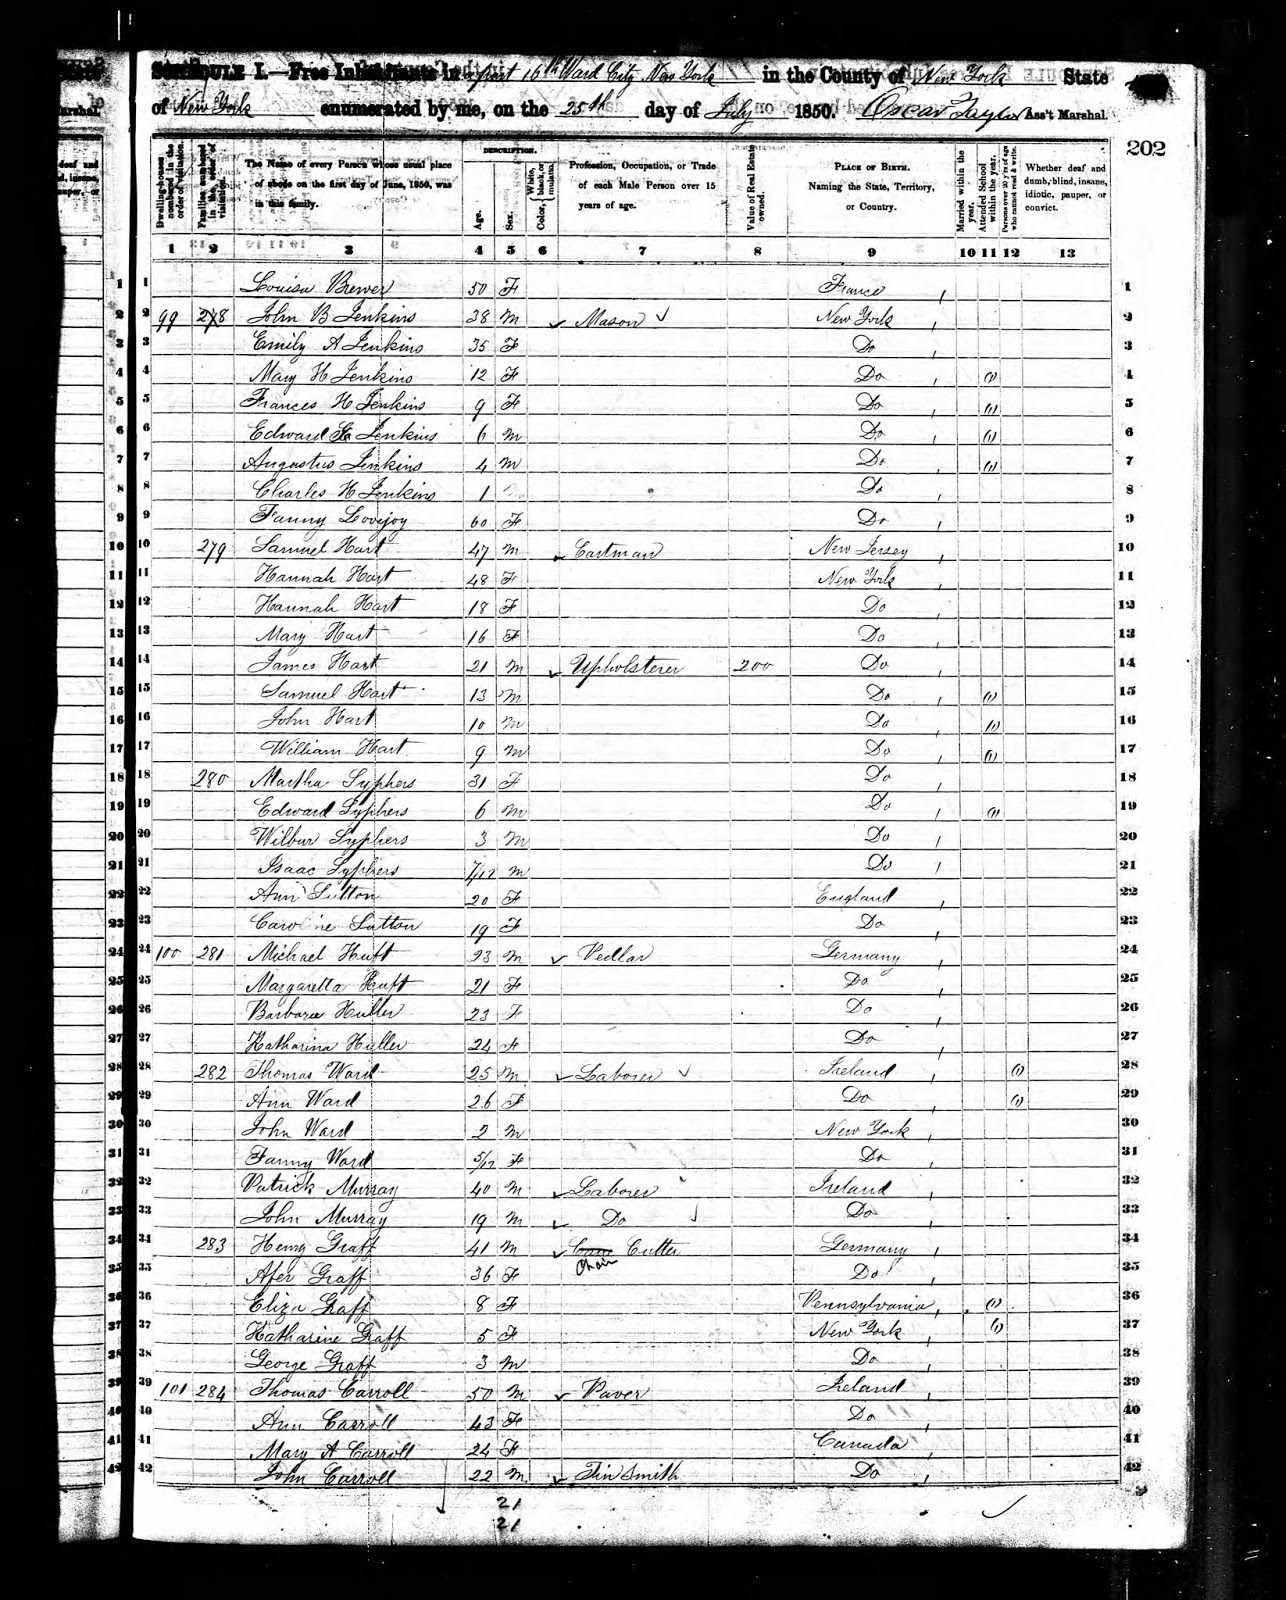 SCHEDULE I.—Free Inhabitants in part 16th Ward City New York in the County of New York State
of New York enumerated by me, on the 25th day of July 1850. Oscar Taylor Ass't Marshal.
202
Dwelling-houses numbered in the order of visitation.
Families numbered in the order of visitation.
The Name of every Person whose usual place of abode on the first day of June, 1850, was in this family.
DESCRIPTION.
Age.
Sex.
Color, White, black, or mulatto.
Profession, Occupation, or Trade of each Male Person over 15 years of age.
Value of Real Estate owned.
PLACE OF BIRTH. Naming the State, Territory, or Country.
Married within the year.
Attended School within the year.
Persons over 20 y'rs of age who cannot read & write.
Whether deaf and dumb, blind, insane, idiotic, pauper, or convict.
1 2 3 4 5 6 7 8 9 10 11 12 13
1 Louisa Brewer 50 F France 1
2 99 278 John B Jenkins 38 M Mason New York 2
3 Emily A Jenkins 35 F Do 3
4 Mary H Jenkins 12 F Do (1) 4
5 Frances H Jenkins 9 F Do (1) 5
6 Edward Jenkins 6 M Do (1) 6
7 Augustus Jenkins 4 M Do (1) 7
8 Charles H Jenkins 1 Do 8
9 Fanny Lovejoy 60 F Do 9
10 279 Samuel Hart 47 M Cartman New Jersey 10
11 Hannah Hart 48 F New York 11
12 Hannah Hart 18 F Do 12
13 Mary Hart 16 F Do 13
14 James Hart 21 M Upholsterer 200 Do 14
15 Samuel Hart 13 M Do (1) 15
16 John Hart 10 M Do (1) 16
17 William Hart 9 M Do (1) 17
18 280 Martha Syphers 31 F Do 18
19 Edward Syphers 6 M Do (1) 19
20 Wilbur Syphers 3 M Do 20
21 Isaac Syphers 7/12 M Do 21
22 Ann Sutton 20 F England 22
23 Caroline Sutton 19 F Do 23
24 100 281 Michael Huft 23 M Pedlar Germany 24
25 Margaretta Huft 21 F Do 25
26 Barbara Huller 23 F Do 26
27 Katharina Huller 24 F Do 27
28 282 Thomas Ward 25 M Laborer Ireland (1) 28
29 Ann Ward 26 F Do (1) 29
30 John Ward 2 M New York 30
31 Fanny Ward 5/12 F Do 31
32 Patrick Murray 40 M Laborer Ireland 32
33 John Murray 19 M Do Do 33
34 283 Henry Graff 41 M Chair Cutter Germany 34
35 Afer Graff 36 F Do 35
36 Eliza Graff 8 F Pennsylvania (1) 36
37 Katharine Graff 5 F New York (1) 37
38 George Graff 3 M Do 38
39 101 284 Thomas Carroll 50 M Paver Ireland 39
40 Ann Carroll 43 F Do 40
41 Mary A Carroll 24 F Canada 41
42 John Carroll 22 M Tin Smith Do 42
21
21